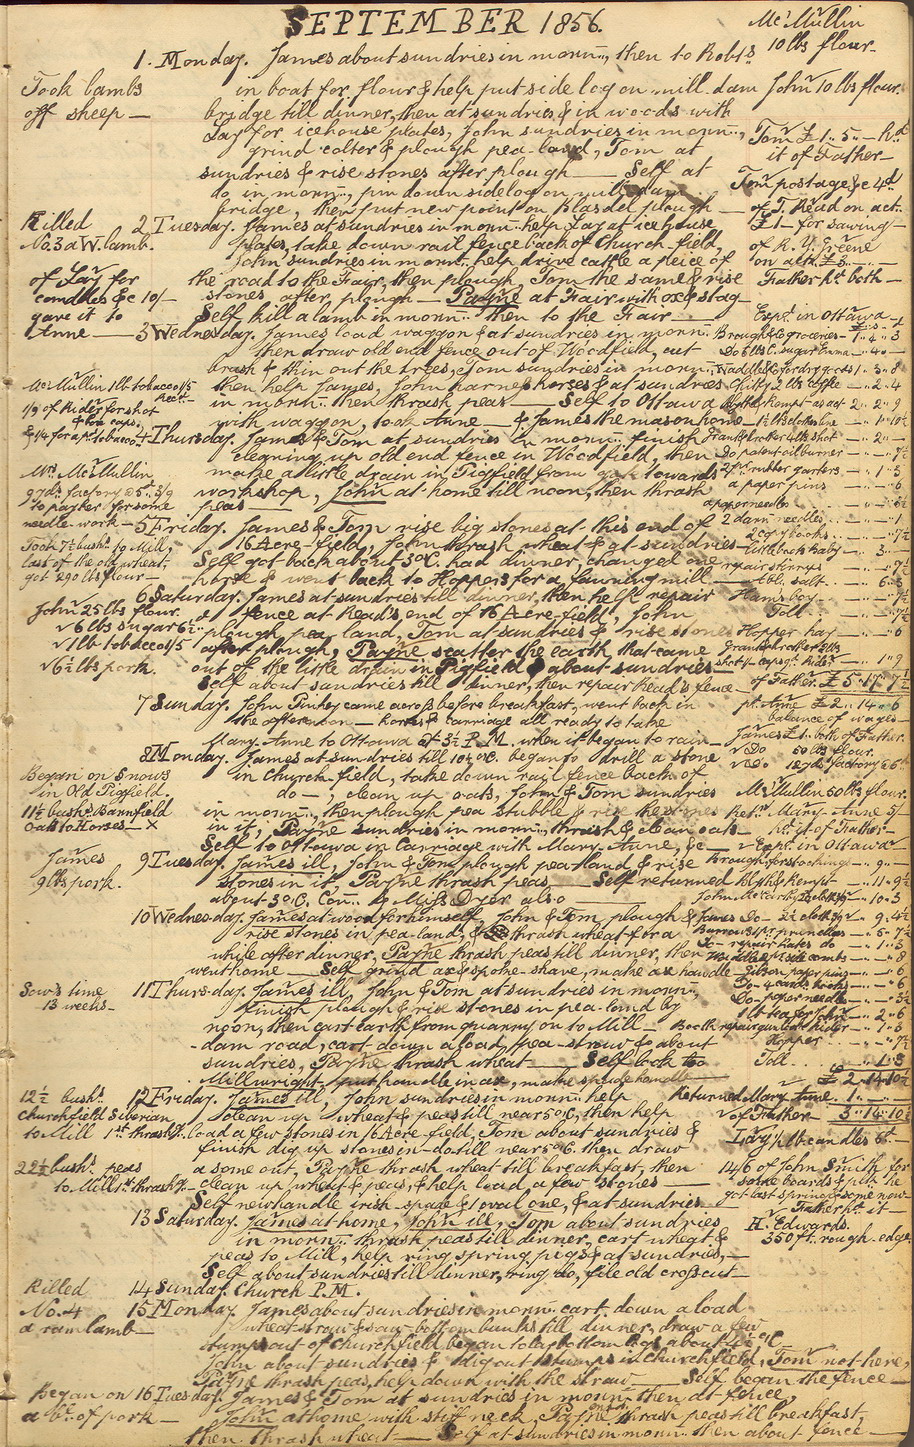 SEPTEMBER 1856.
McMullin
10 lbs flour.
1. Monday. James about sundries in morn.., then to Rob.ts
Took lambs
off sheep —
in boat for flour & help put side log on mill-dam
John 10 lbs flour.
bridge till dinner, then at sundries, & in woods with
Lay for icehouse plates, John sundries in morn..,
grind colter & plough pea-land, Tom at
Tom £1..5..- h.d
it of Father —
sundries & rise stones after plough — Self at
do in morn.., pin down side log on mill-dam
Tom postage &c 4d
bridge, then put new point on Blasdel plough —
of T. Read on act.
Killed
No. 3 a W. lamb.
2 Tuesday. James at sundries in morn.. help Lay at icehouse
£1 — for sawing —
plates, take down rail fence back of Church-field,
of R. Y. Greene
John sundries in morn.. help drive cattle a piece of
on act. £3 —
of Lay for
candles &c 10/-
gave it to
Anne —
the road to the Fair, then plough, Tom the same & rise
Father h.d both —
stones after plough — Payne at Fair with ox & stag
Self kill a lamb in morn.. then to the Fair —
Exp.s in Ottawa —
3 Wednesday. James load waggon & at sundries in morn..
Brough & Co groceries — 1.. 4.. 3
then draw old end fence out of Woodfield, cut
Do 6 lbs C. sugar Emma — 4..
brush & thin out the trees, Tom sundries in morn..
McMullin 1 lb tobacco 1/5
then help James, John harness horses & at sundries
2 lbs coffee — 2.. 4
1/9 of Rider for shot
in morn.. then thrash peas — Self to Ottawa
2.. 2.. 9
with waggon, took Anne — & James the mason home —
4 Thursday. James & Tom at sundries in morn.. finish
4 lb shot — 2..
cleaning up old end fence in Woodfield, then
Do patent oil burner — 7½
Mrs. McMullin
make a little drain in Pigfield from gate towards
2 pr. rubber garters — 1.. 3
9 yds factory @ 5d 3/9
to pay her for some
needle-work —
workshop, John at home till noon, then thrash
a paper pins — 6
peas —
a paper needles
5 Friday. James & Tom rise big stones at this end of
2 darn needles — 1
Took 7½ bush. to Mill,
last of the old wheat,
got 290 lbs flour —
16 Acre-field, John thrash wheat & at sundries —
2 copy books — 7½
Self got back about 3 o'C. had dinner, changed one
repair stirrups — 7½
horse & went back to Hoppers for a fanning mill —
tbl. salt — 6.. 3
6 Saturday. James at sundries till dinner, then help repair
Hams boy —
John 25 lbs flour.
fence at Read's end of 16 Acre-field, John
Toll — 7½
√ 6 lbs sugar 6½
plough pea land, Tom at sundries & rise stones
Hopper hay — 6
√ 1 lb tobacco 1/5
after plough, Payne scatter the earth that came
√ 6½ lbs pork.
out of the little drain in Pigfield & about sundries —
1.. 9
Self about sundries till dinner, then repair Read's fence —
of Father £5..17..7½
7 Sunday. John Pinkey came across before breakfast, went back in
pd. Anne £2..14..6
the afternoon — horses & carriage all ready to take
balance of wages —
Mary Anne to Ottawa at 3½ P.M. when it began to rain —
James £1 both of Father.
8 Monday. James at sundries till 10½ o'C. began to drill a stone
√ Do 50 lbs flour.
in Church-field, take down rail fence back of
√ Do 12 yds factory @ 5d
Began on 5 nows
in Old Pigfield.
do —, clean up oats, John & Tom sundries
McMullin 50 lbs flour.
11½ bush. Barnfield
Oats to Horses — x
in morn.., then plough pea stubble & rise the stones
Ret.d Mary Anne 5/-
in it, Payne sundries in morn.., thrash & clean oats
h.d it of Father —
Self to Ottawa in Carriage with Mary Anne, &c —
√ Exp.s in Ottawa
James
9 lbs pork.
9 Tuesday. James ill, John & Tom plough pea-land & rise
Brough for stockings — 9..
stones in it, Payne thrash peas — Self returned
Blyth & Kerr — 11.. 9½
about 3 o'C. Con.. to Miss Dyer also
10.. 3
10 Wednesday. James at wood for himself, John & Tom plough &
James Do — 9.. 4½
rise stones in pea-land, & thrash wheat for a
6.. 7½
while after dinner, Payne thrash peas till dinner, then
Do — repair hates do — 1.. 3
went home — Self grind ax & spoke-shave, make ax handle —
paper pins — 6
Sow's time
13 weeks —
11 Thursday. James ill, John & Tom at sundries in morn..
Do — 4 cards hooks — 6
finish plough & rise stones in pea-land by
Do — paper needles — 3½
noon, then cart earth from quarry on to Mill —
1 lb tea for John — 2.. 6
- dam road, cart down a load, pea-straw & about
Hopper — 7½
sundries, Payne thrash wheat — Self look to
Toll — 1.. 3
Millwright, put handle in ax, make spade handle —
£2..14..10½
12½ bush.
Churchfield Siberian
to Mill 1st thrash.g.
12 Friday. James ill, John sundries in morn.. help
Returned Mary Anne 1..
clean up wheat & peas till near 5 o'C, then help
√ of Father — 3..14..10½
load a few stones in 16 Acre-field, Tom about sundries &
Lay ½ lb candles 6d —
finish dig up stones in — do till near 5 o'C. then draw
22½ bush. peas
to Mill 1st thrash.g —
a some out, Payne thrash wheat till breakfast, then
14/6 of John Smith for
clean up wheat & peas, & help load, a few stones —
some boards & pl.k he
Self new handle Irish-spade & 1 oval one, & at sundries —
got last spring & some now
13 Saturday. James at home, John ill, Tom about sundries
Father h.d it —
in morn.. thrash peas till dinner, cart wheat &
H. Edwards.
peas to Mill, help ring spring pigs & at sundries, —
350 ft. rough-edge
Self about sundries till dinner, ring do, file old crosscut —
Killed
No. 4
a ram lamb —
14 Sunday. Church P.M.
15 Monday. James about sundries in morn.. cart down a load
wheat-straw & saw-bottom bunks till dinner, draw a few
stumps out of Churchfield began to lap bottom logs about 4½ o'C
John about sundries & dig out stumps in Churchfield, Tom not here,
Payne thrash peas, help down with the straw — Self began the fence —
Began on
a bl. of pork —
16 Tuesday. James & Tom at sundries in morn.. then at fence,
John at home with stiff neck, Payne thrash peas till breakfast,
then thrash wheat — Self at sundries in morn.. then about fence —